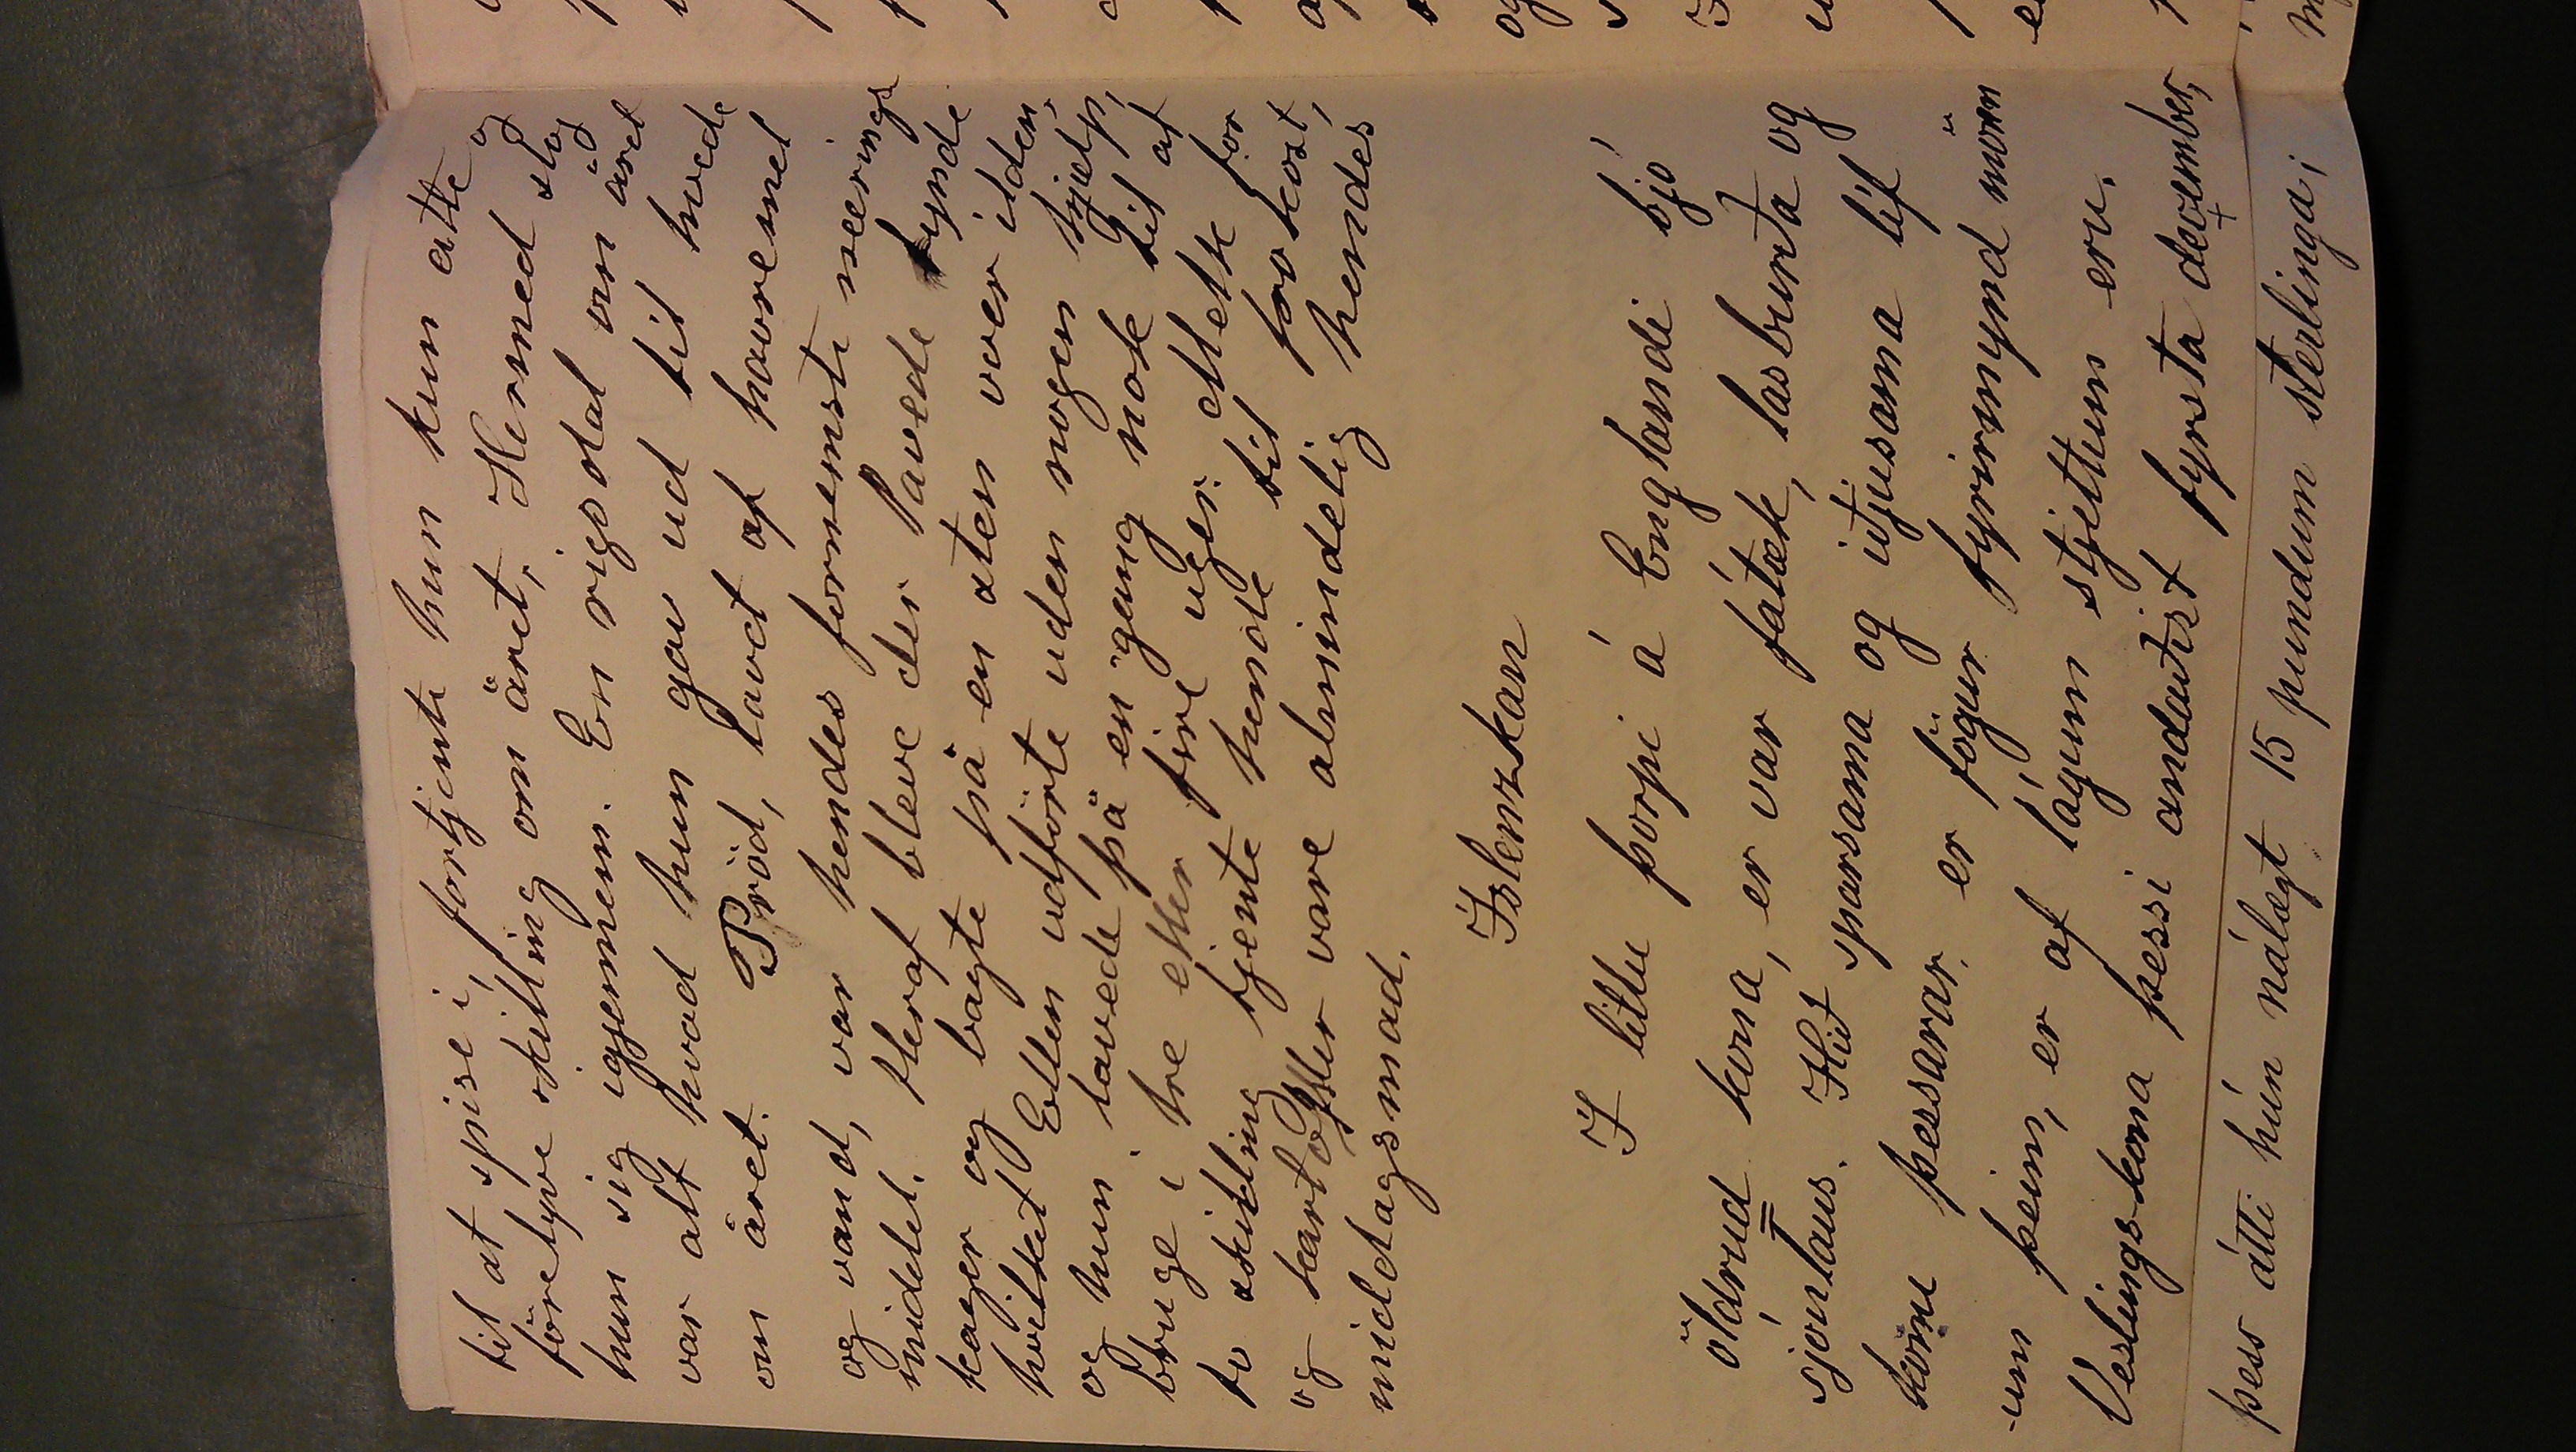 til at spise i, fortjente hun kun atte og
företyve skilling om året; Hermed slog
hun sig igjennem. En rigsdal om året
var alt hvad hun gav ud til hvede
om året. Pröd, lavet af havremel
og vand, var hendes fornemste nærings
midel. Heraf bleve der lavede tynde
kager og bagte på en sten over ilden,
hvilket Ellen udförte uden nogen hjælp,
og hun lavede på en gang nok til at
bruge i tre eller fire uger. Melk for
to skilling tjente hende til frokost,
og kartofler vare almindelig hendes
middagsmad.
Íslenzkan
I litlu þorpi á Englandi bjó
öldruð kona, er var fátæk, lasburða og
sjónlaus. Hið sparsama og iðjusama líf
konu þessarar er fögur fyrirmynd mörn
um þeim, er af lágum stjettum eru.
Veslingskona þessi andaðist fyrsta dezember,
þess átti hún nálægt 15 pundum sterlinga;